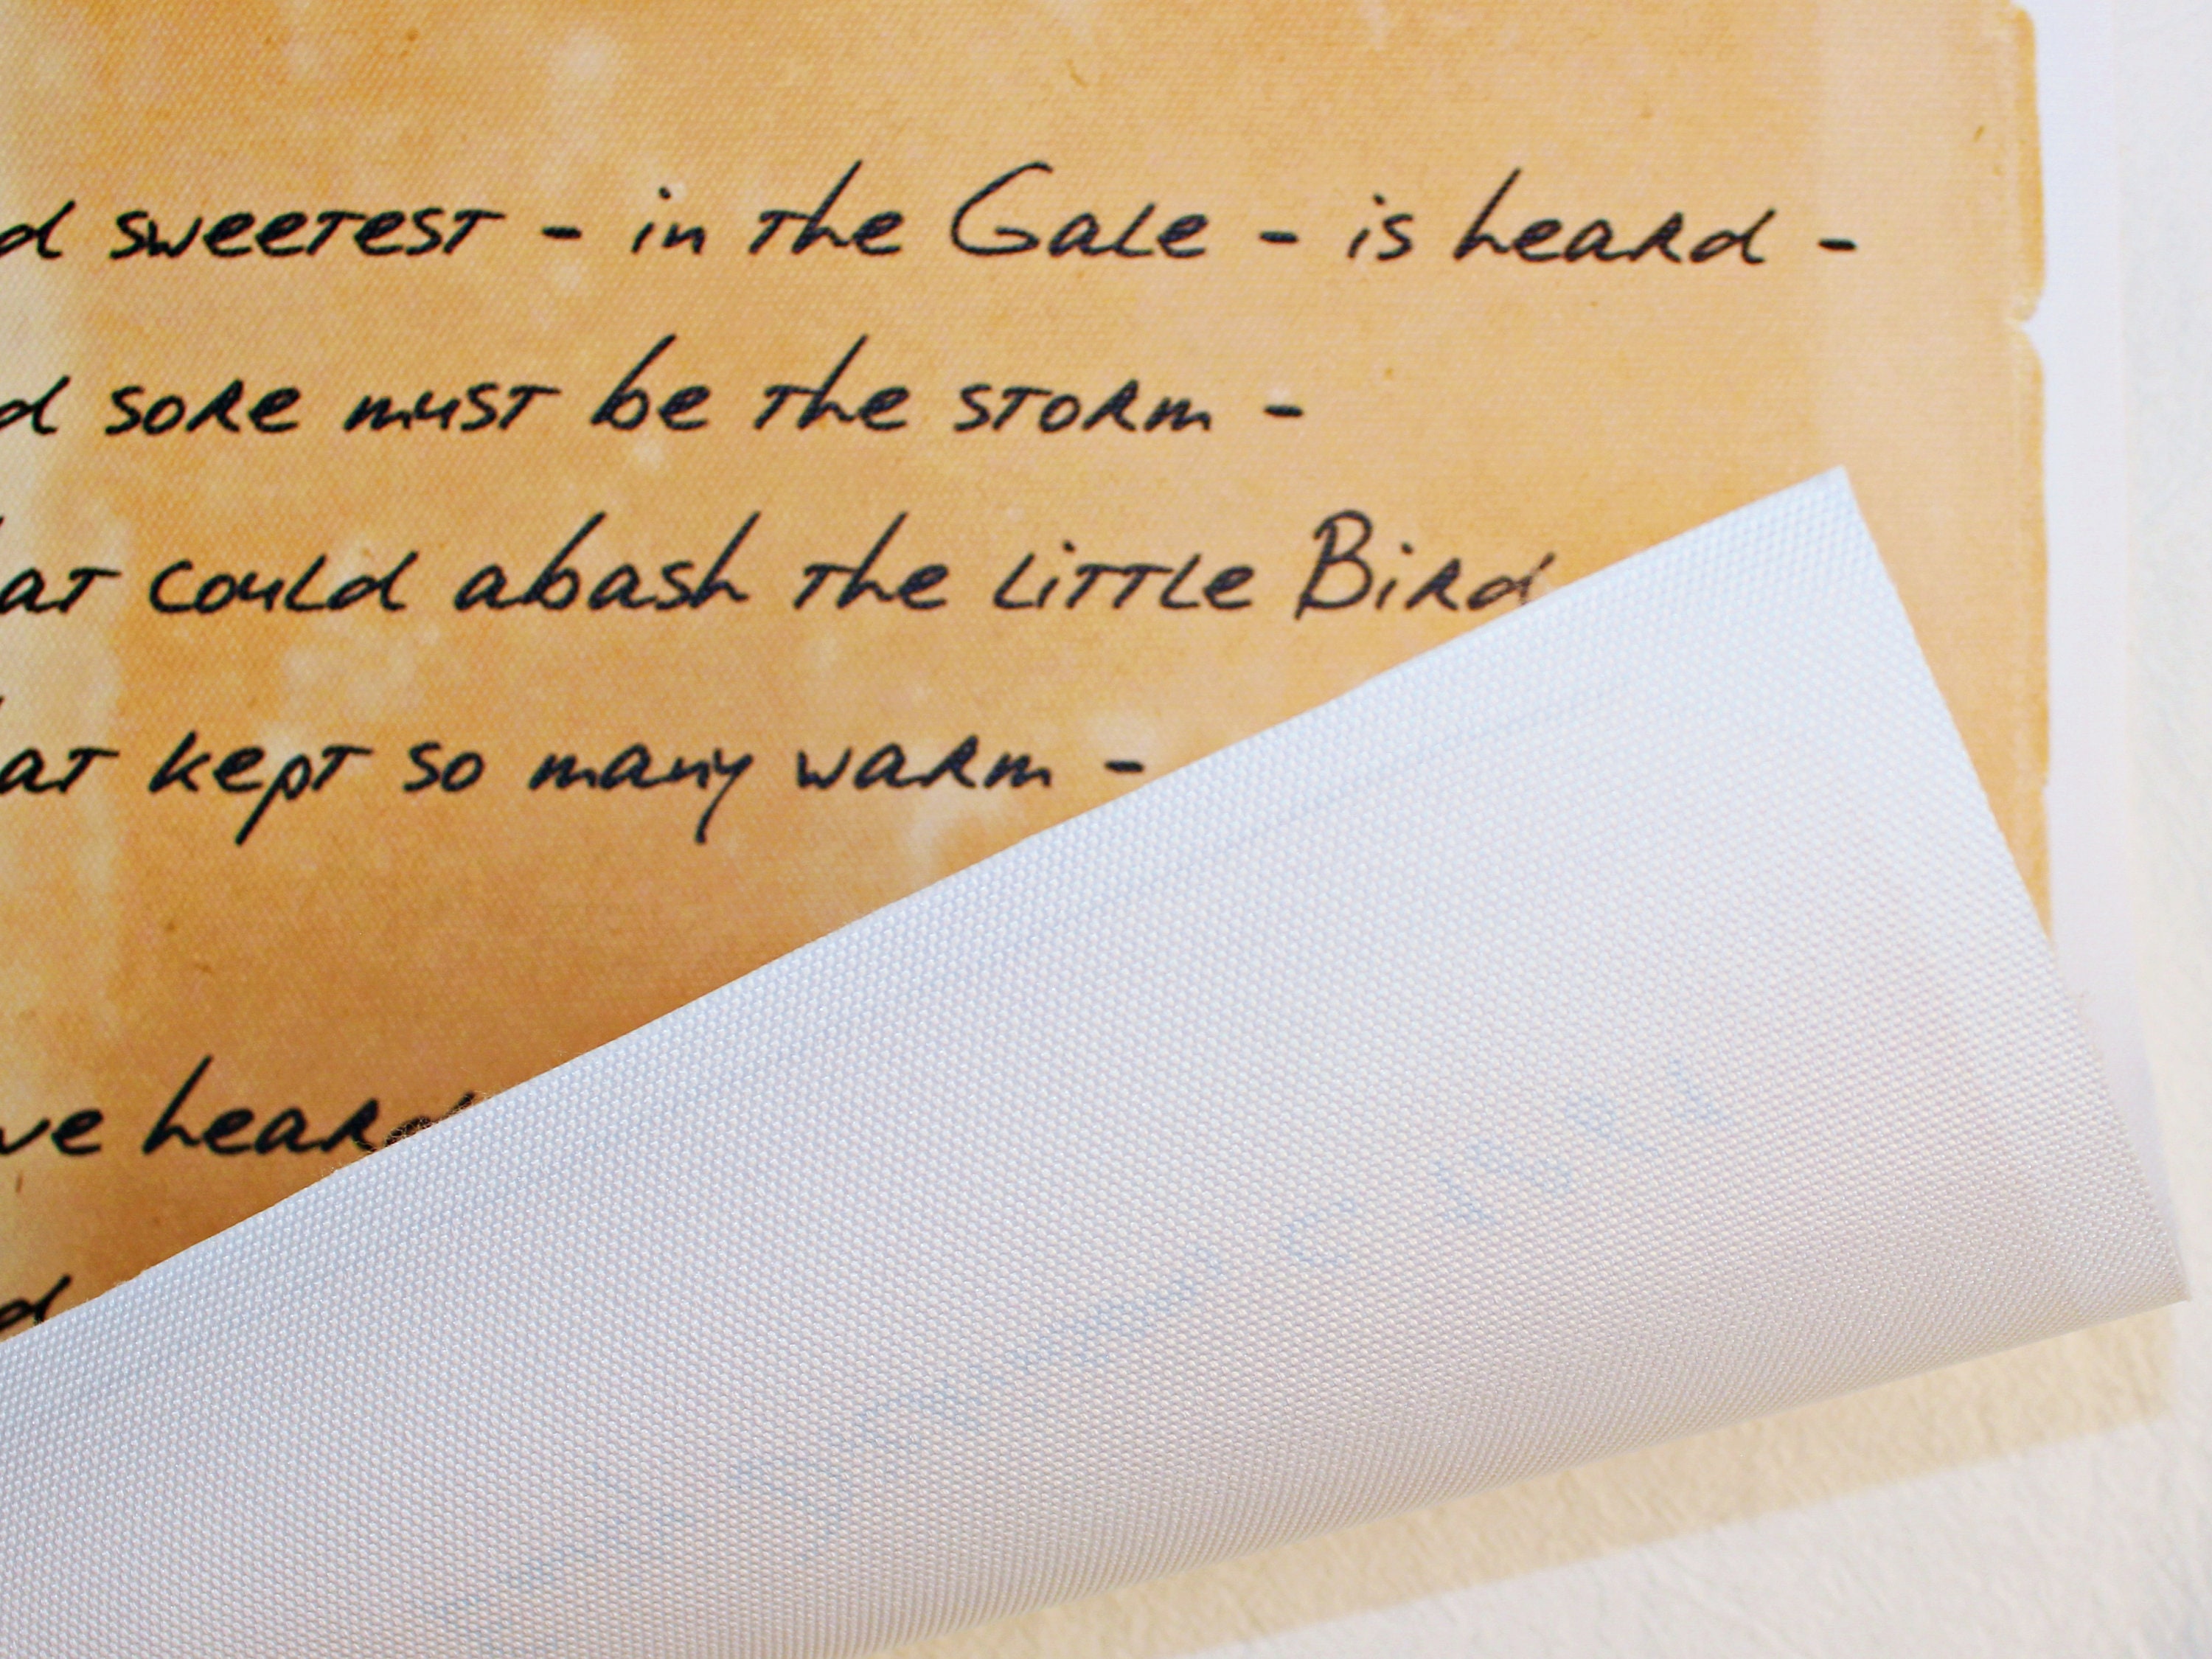 d sweetest - in the Gale - is heard -
d sore must be the storm -
at could abash the little Bird
at kept so many warm -
ve heard
d